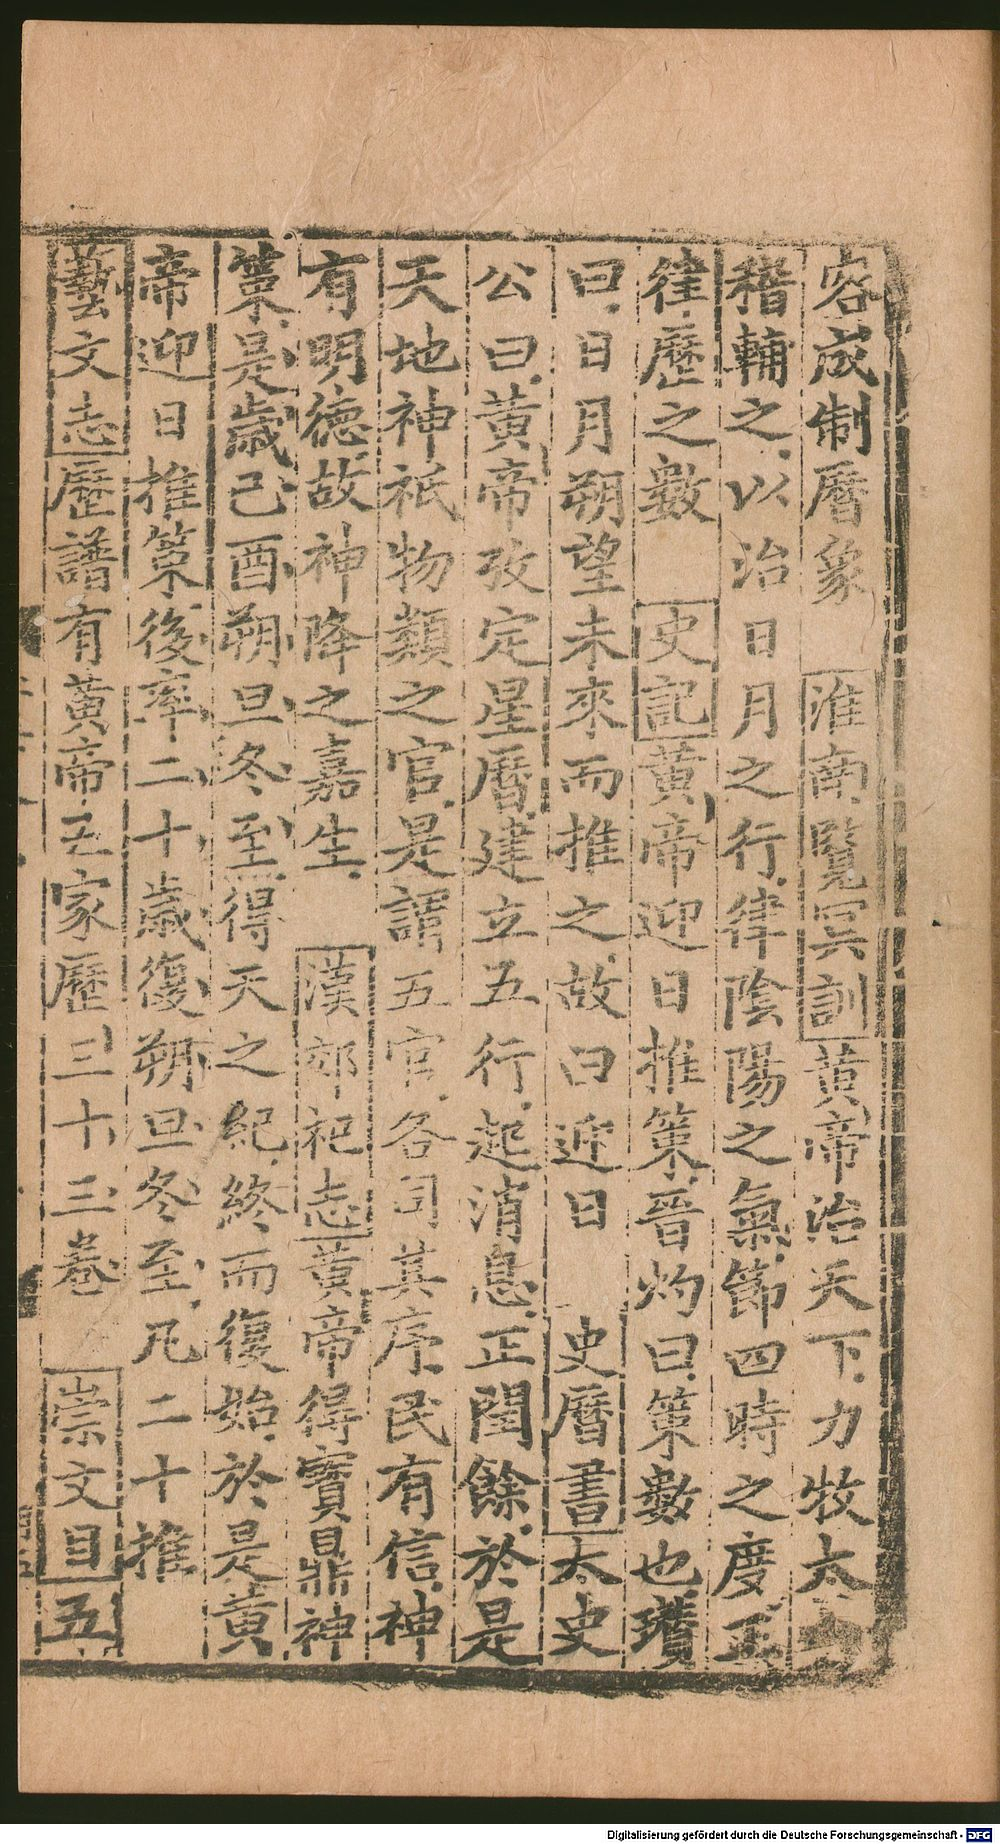 容成制曆象 淮南覽冥訓黃帝治天下力牧太
稽輔之以治日月之行律陰陽之氣節四時之度正
律歷之數 史記黃帝迎日推策晉灼曰策數也瓚
曰日月朔望未來而推之故曰迎日 史曆書太史
公曰黃帝攷定星曆建立五行起消息正閏餘於是
天地神祇物類之官是謂五官各司其序民有信神
有明德故神降之嘉生 漢郊祀志黃帝得寶鼎神
策是歲己酉朔旦冬至得天之紀終而復始於是黃
帝迎日推策後率二十歲復朔旦冬至凡二十推
藝文志歷譜有黃帝五家歷三十三卷 崇文目五
Digitalisierung gefördert durch die Deutsche Forschungsgemeinschaft - DFG